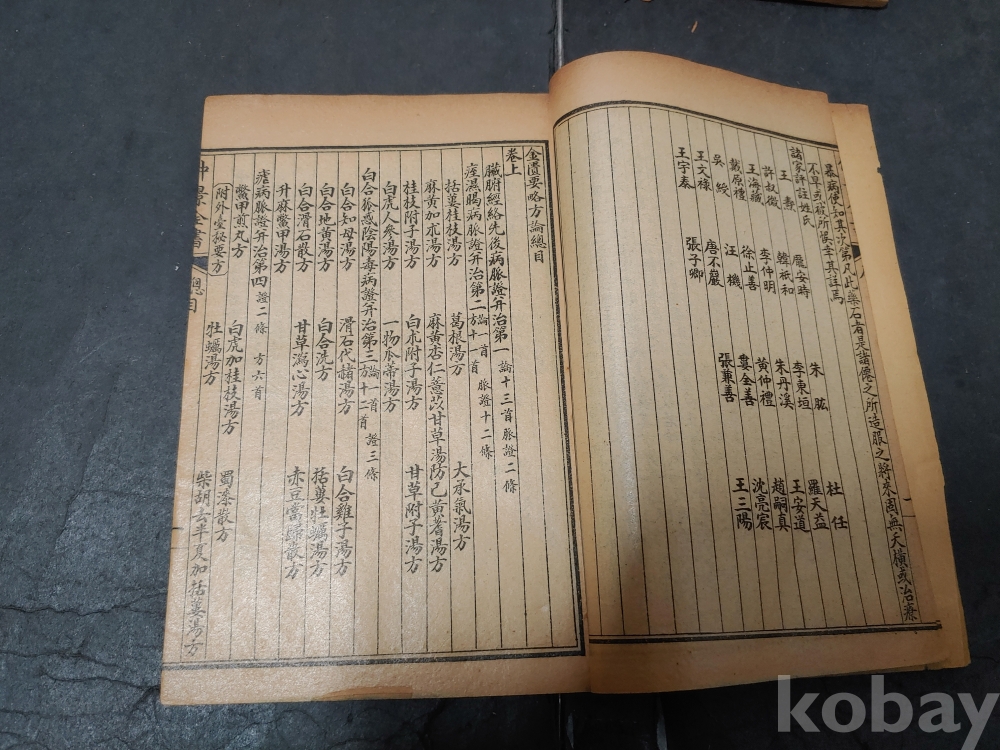 暴病使知其次第凡此藥石者是諸僊之所造服之將來固無夭橫或治療
不早或被所悞幸其詳焉
諸家評註姓氏
王壽 龐安時 朱肱 杜任
許叔微 韓祇和 李東垣 羅天益
王海藏 李仲明 朱丹溪 王安道
戴原禮 徐止善 黃仲禮 趙嗣真
吳綬 汪機 婁全善 沈亮宸
王文祿 唐不巖 張兼善 王三陽
王宇泰 張子卿
金匱要略方論總目
卷上
臟腑經絡先後病脈證并治第一 論十三首脈證二條
痓濕暍病脈證并治第二 論一首 脈證十二條 方十一首
括蔞桂枝湯方 葛根湯方 大承氣湯方
麻黃加朮湯方 麻黃杏仁薏苡甘草湯方 防己黃蓍湯方
桂枝附子湯方 白朮附子湯方 甘草附子湯方
白虎人參湯方 一物瓜蒂湯方
百合狐惑陰陽毒病證并治第三 論一首 證三條 方十二首
百合知母湯方 滑石代赭湯方 百合雞子湯方
百合地黃湯方 百合洗方 括蔞牡蠣湯方
百合滑石散方 甘草瀉心湯方 赤豆當歸散方
升麻鱉甲湯方
瘧病脈證并治第四 證二條 方六首
鱉甲煎丸方 白虎加桂枝湯方 蜀漆散方
附外臺秘要方 牡蠣湯方 柴胡去半夏加括蔞湯方
仲景全書 總目
kobay